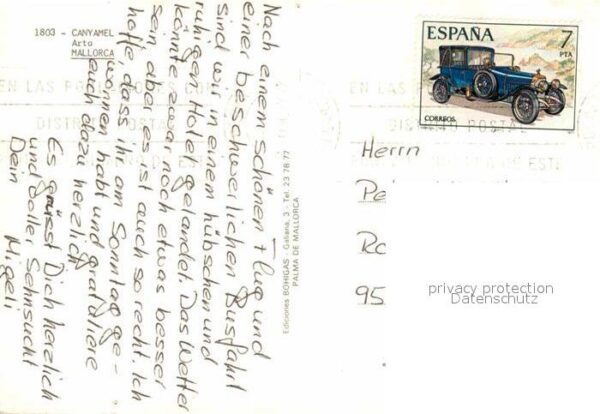 1803 - CANYAMEL
Arta
MALLORCA
Nach einem schönen Flug und
einer beschwerlichen Busfahrt
sind wir in einem hübschen und
ruhigen Hotel gelandet. Das Wetter
könnte zwar noch etwas besser
sein aber es ist auch so recht. Ich
hoffe, dass ihr am Sonntag ge-
wonnen habt und gratuliere
euch dazu herzlich
Es grüsst Dich herzlich
und voller Sehnsucht
Dein Migeli
Ediciones BOHIGAS - Galiana, 3 - Tel. 23 78 77
PALMA DE MALLORCA
ESPAÑA
7
PTA
CORREOS
EN LAS
DISTRITO POSTAL
DISTRITO POSTAL
DE ESTE
Herrn
Pe
Ro
95
privacy protection
Datenschutz